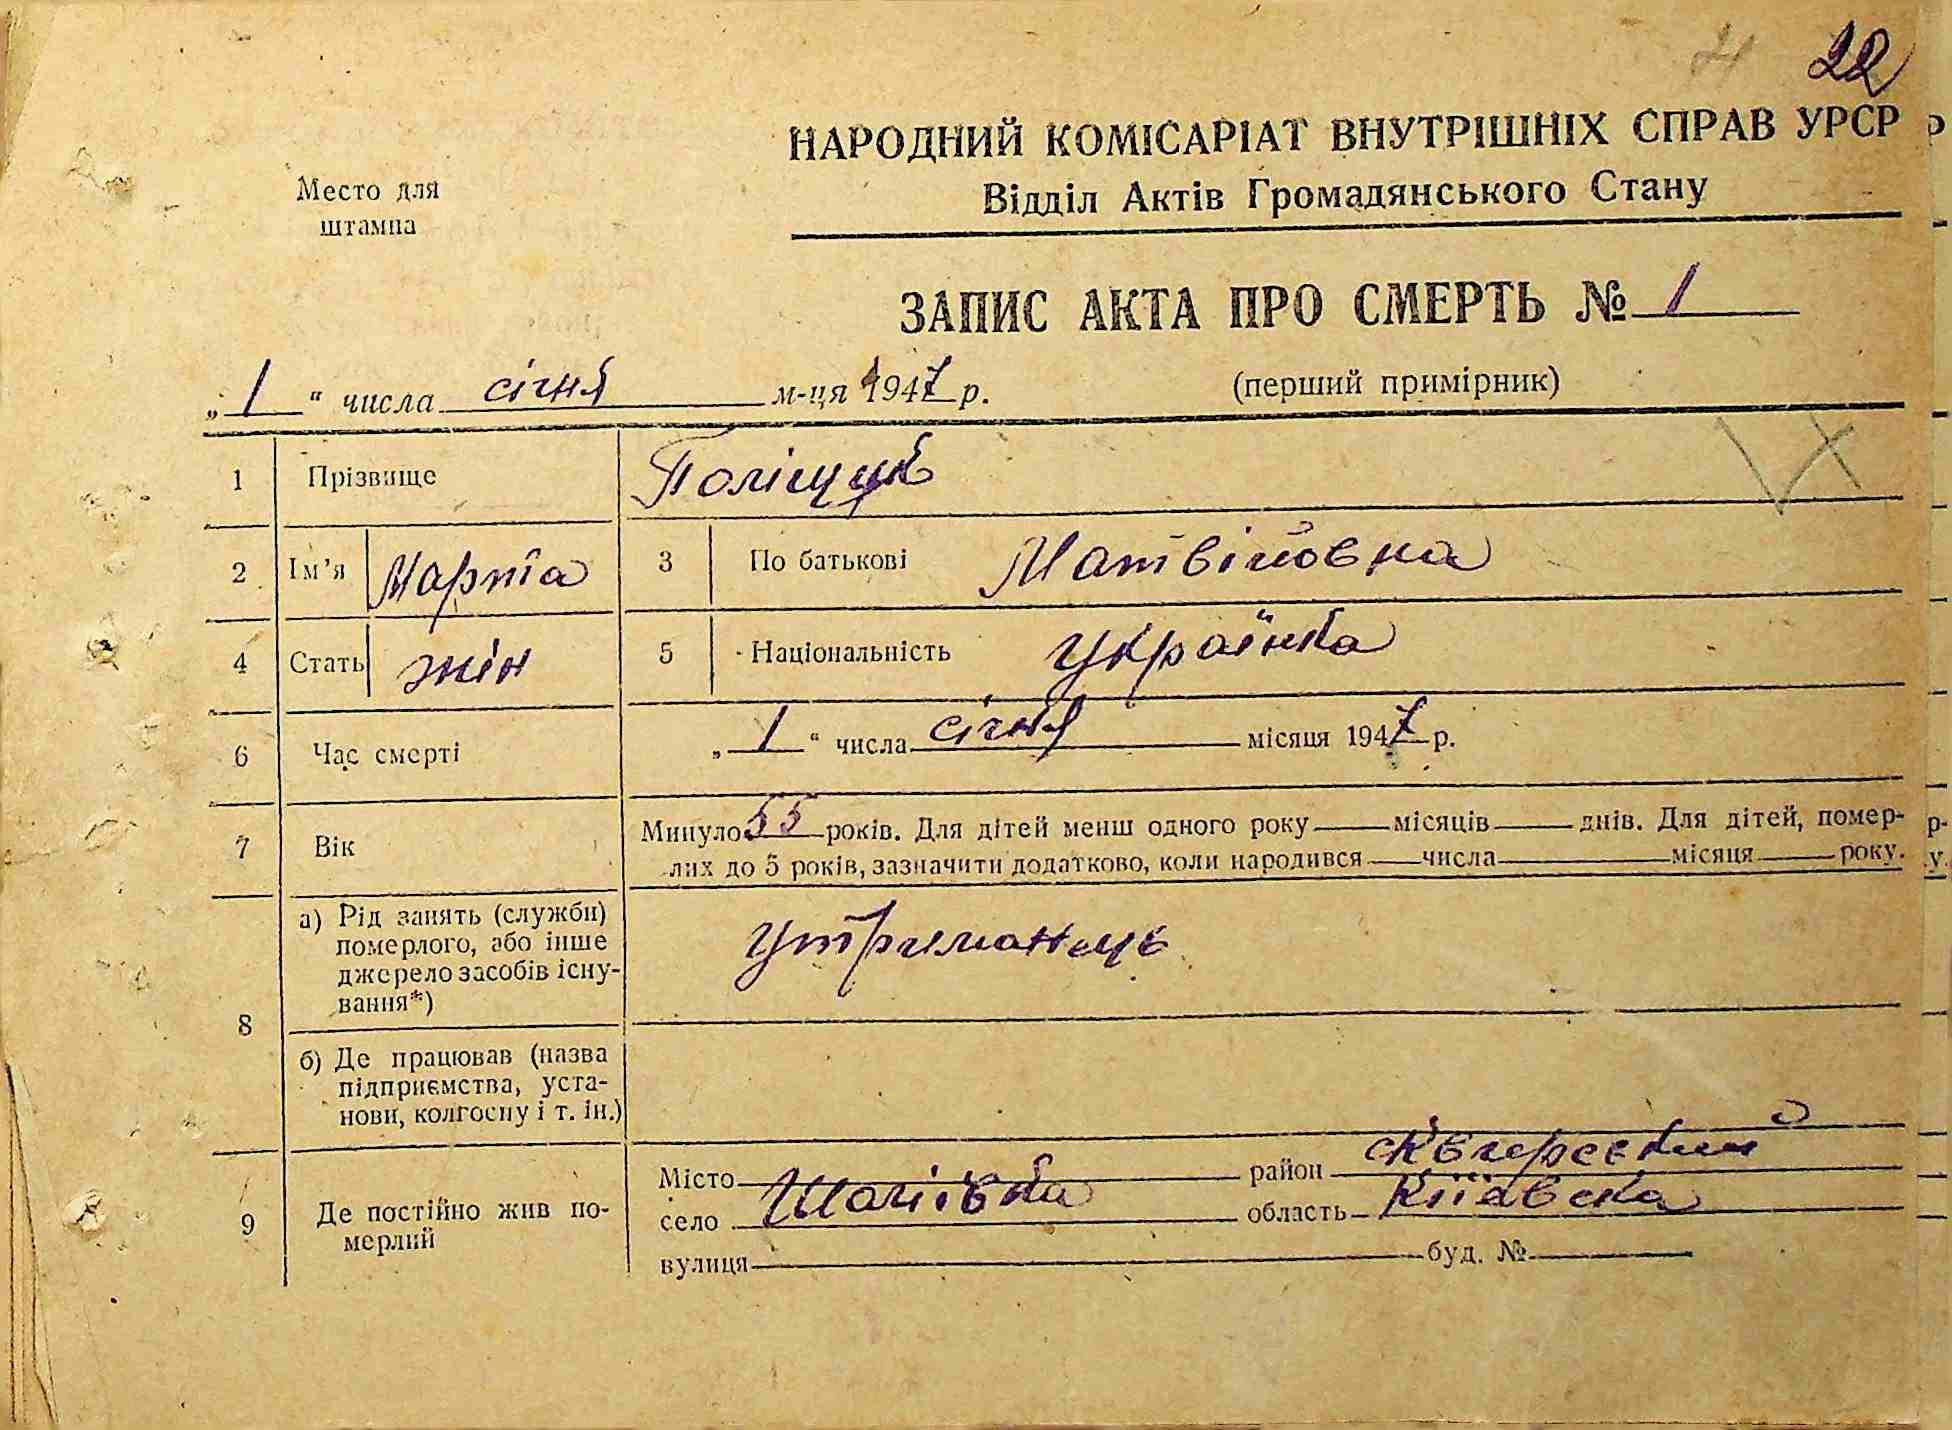 22
НАРОДНИЙ КОМІСАРІАТ ВНУТРІШНІХ СПРАВ УРСР
Відділ Актів Громадянського Стану
Место для
штампа
ЗАПИС АКТА ПРО СМЕРТЬ № 1
„ 1 “ числа січня м-ця 1947 р.
(перший примірник)
1 Прізвище Поліщук
2 Ім'я Марта 3 По батькові Матвійовна
4 Стать жін 5 Національність Українка
6 Час смерті „ 1 “ числа січня місяця 1947 р.
7 Вік Минуло 55 років. Для дітей менш одного року місяців днів. Для дітей, помер-
лих до 5 років, зазначити додатково, коли народився числа місяця року.
8 а) Рід занять (служби)
померлого, або інше
джерело засобів існу-
вання*)
утриманець
б) Де працював (назва
підприємства, уста-
нови, колгоспу і т. ін.)
9 Де постійно жив по-
мерлий
Місто район Сквирський
село Шаліївка область Київска
вулиця буд. №